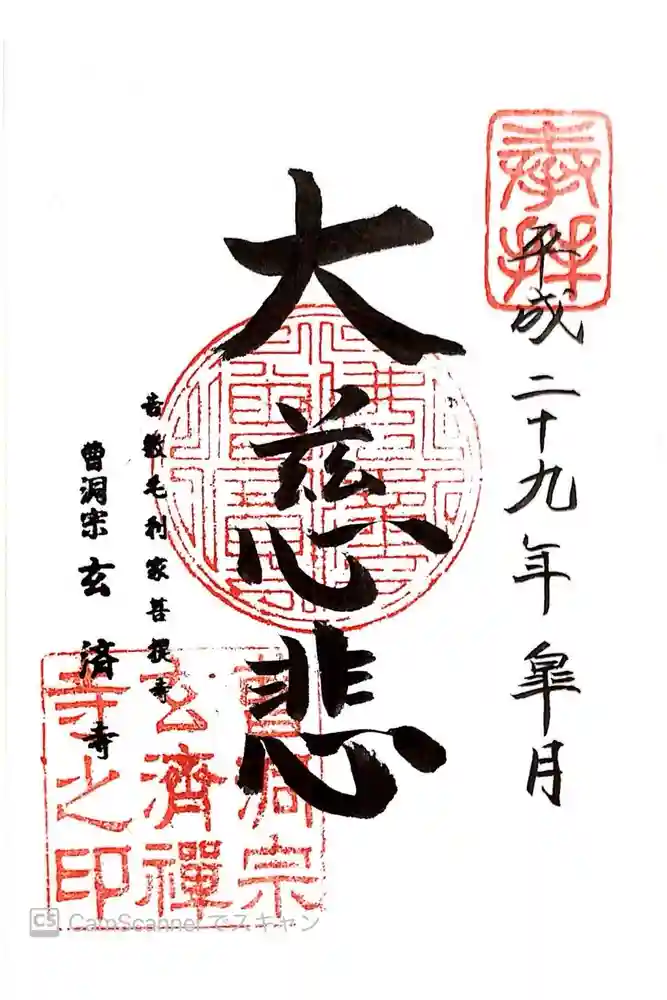 奉拝
平成二十九年皐月
大慈悲
吉敷毛利家菩提寺
曹洞宗 玄済寺
曹洞宗
玄濟禪
寺之印
CS CamScanner でスキャン